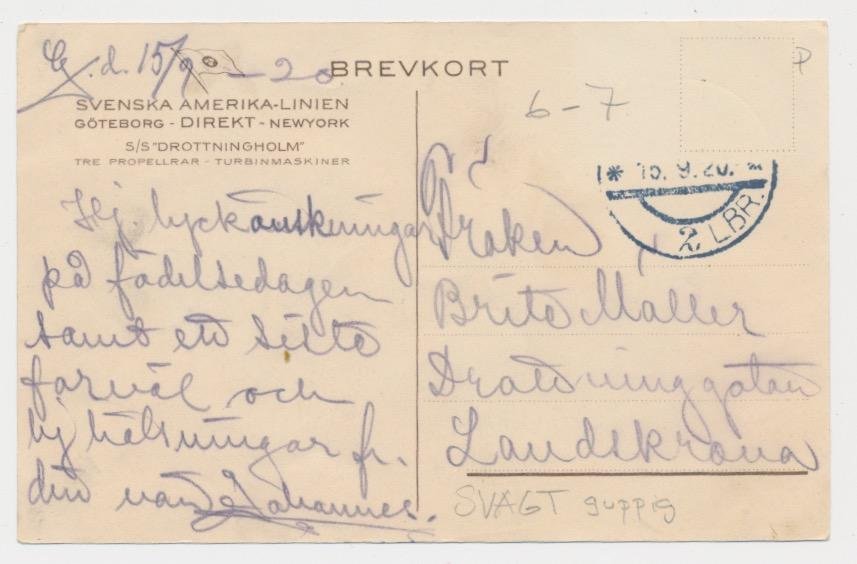 G. d. 15/9 - 20
BREVKORT
SVENSKA AMERIKA-LINIEN
GÖTEBORG - DIREKT - NEWYORK
S/S "DROTTNINGHOLM"
TRE PROPELLRAR - TURBINMASKINER
Hj. lyckönskningar
på födelsedagen
samt ett sista
farväl och
hj hälsningar fr.
din vän Johannes.
6-7
P
* 15. 9. 20.
2. LBR.
Fröken
Müller
Landskrona
SVAGT guppig